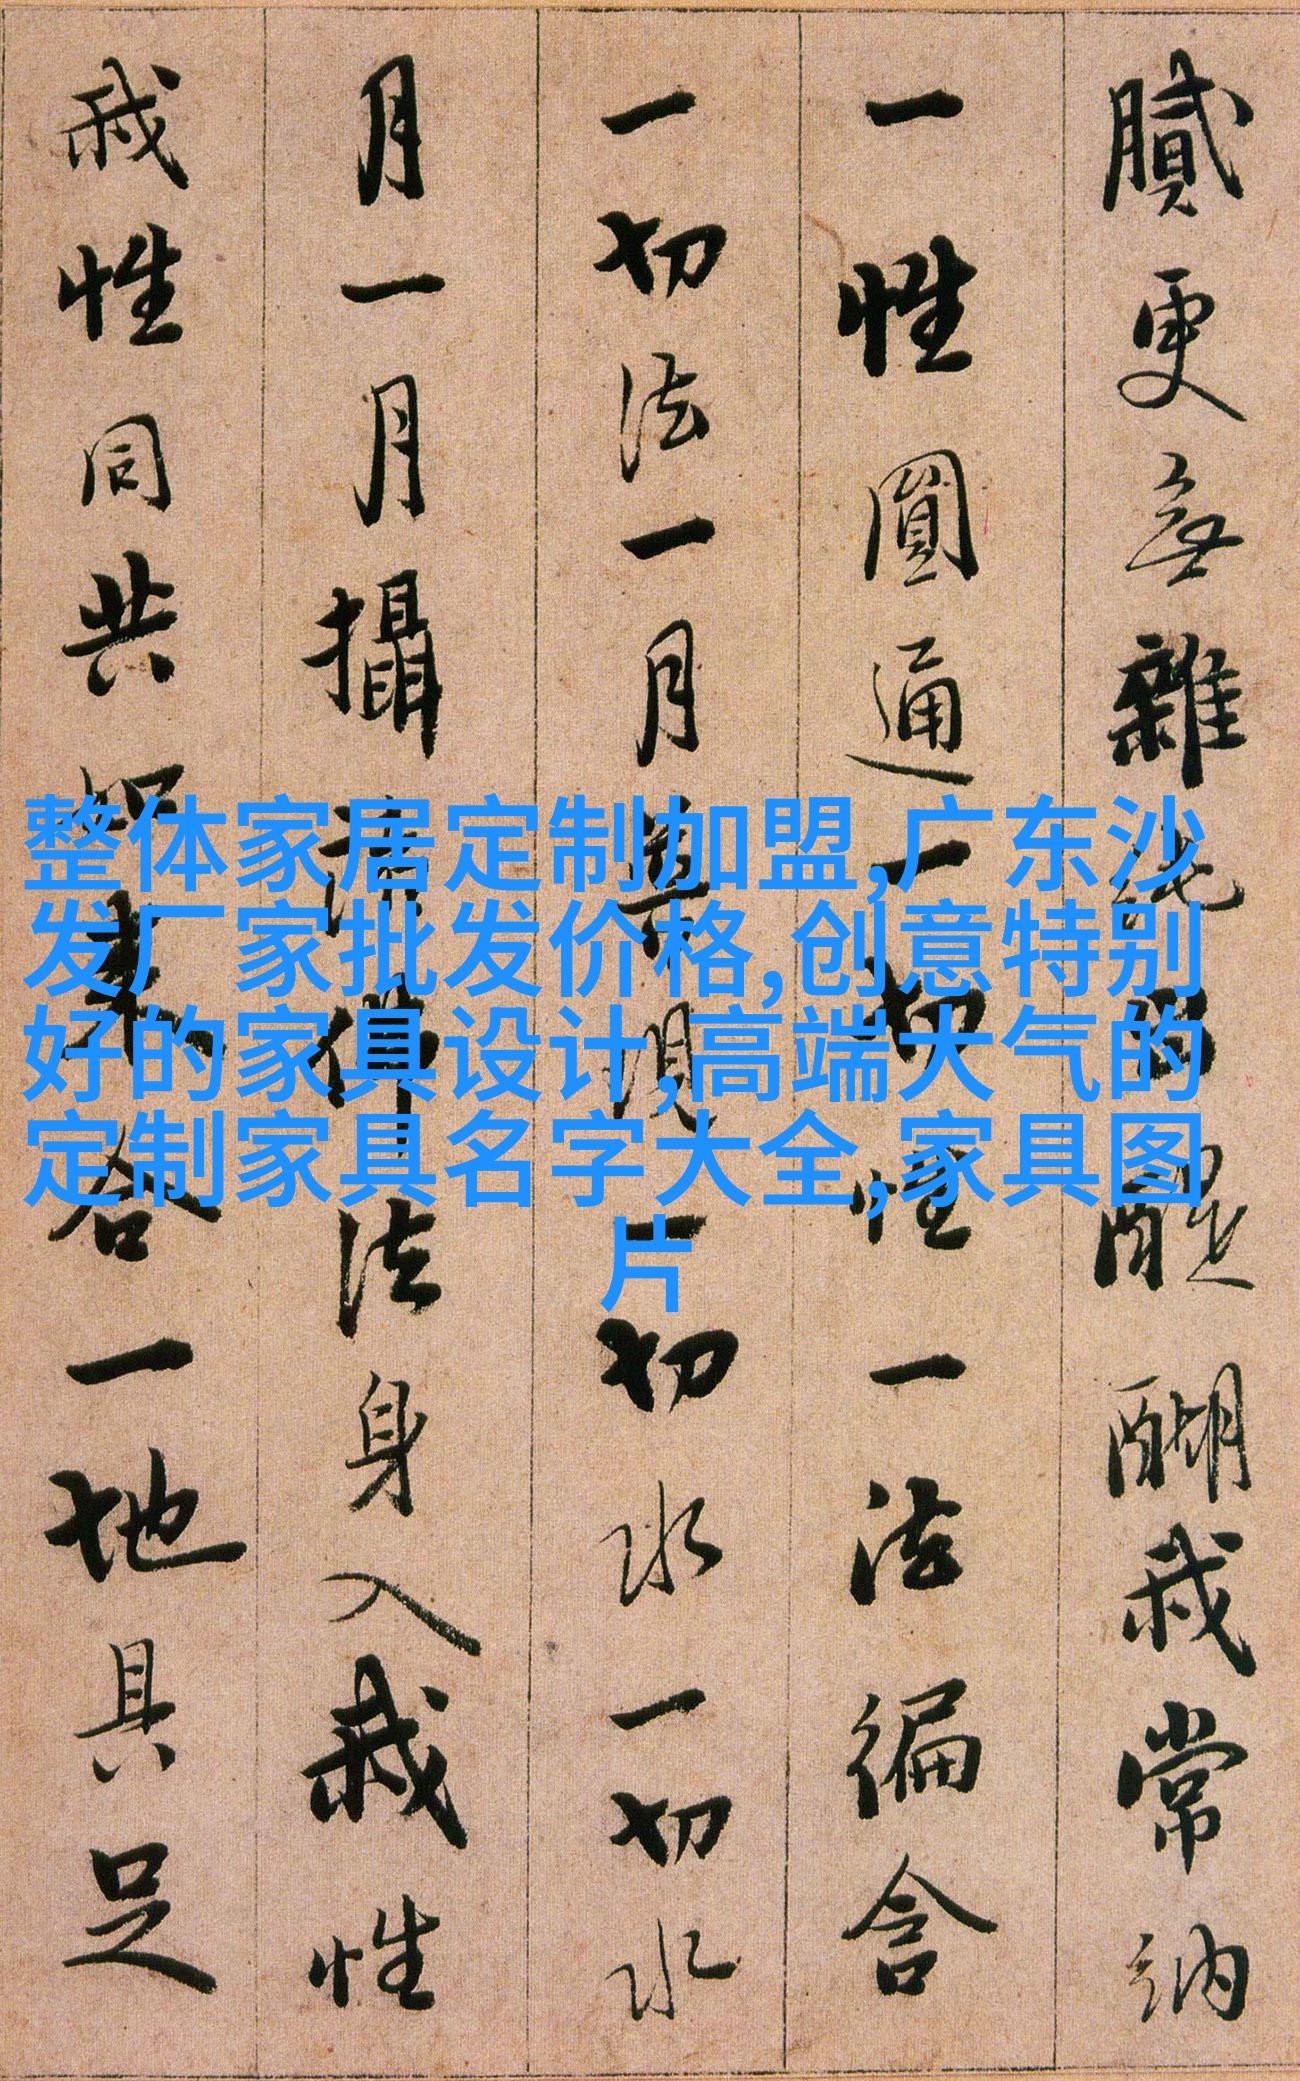 膩更無雜純出醍醐我常納
一性圓通一切性一法徧含
一切法一月普現一切水一切水
月一月攝諸佛法身入我性
我性同共如來合一地具足
整体家居定制加盟,广东沙
发厂家批发价格,创意特别
好的家具设计,高端大气的
定制家具名字大全,家具图
片